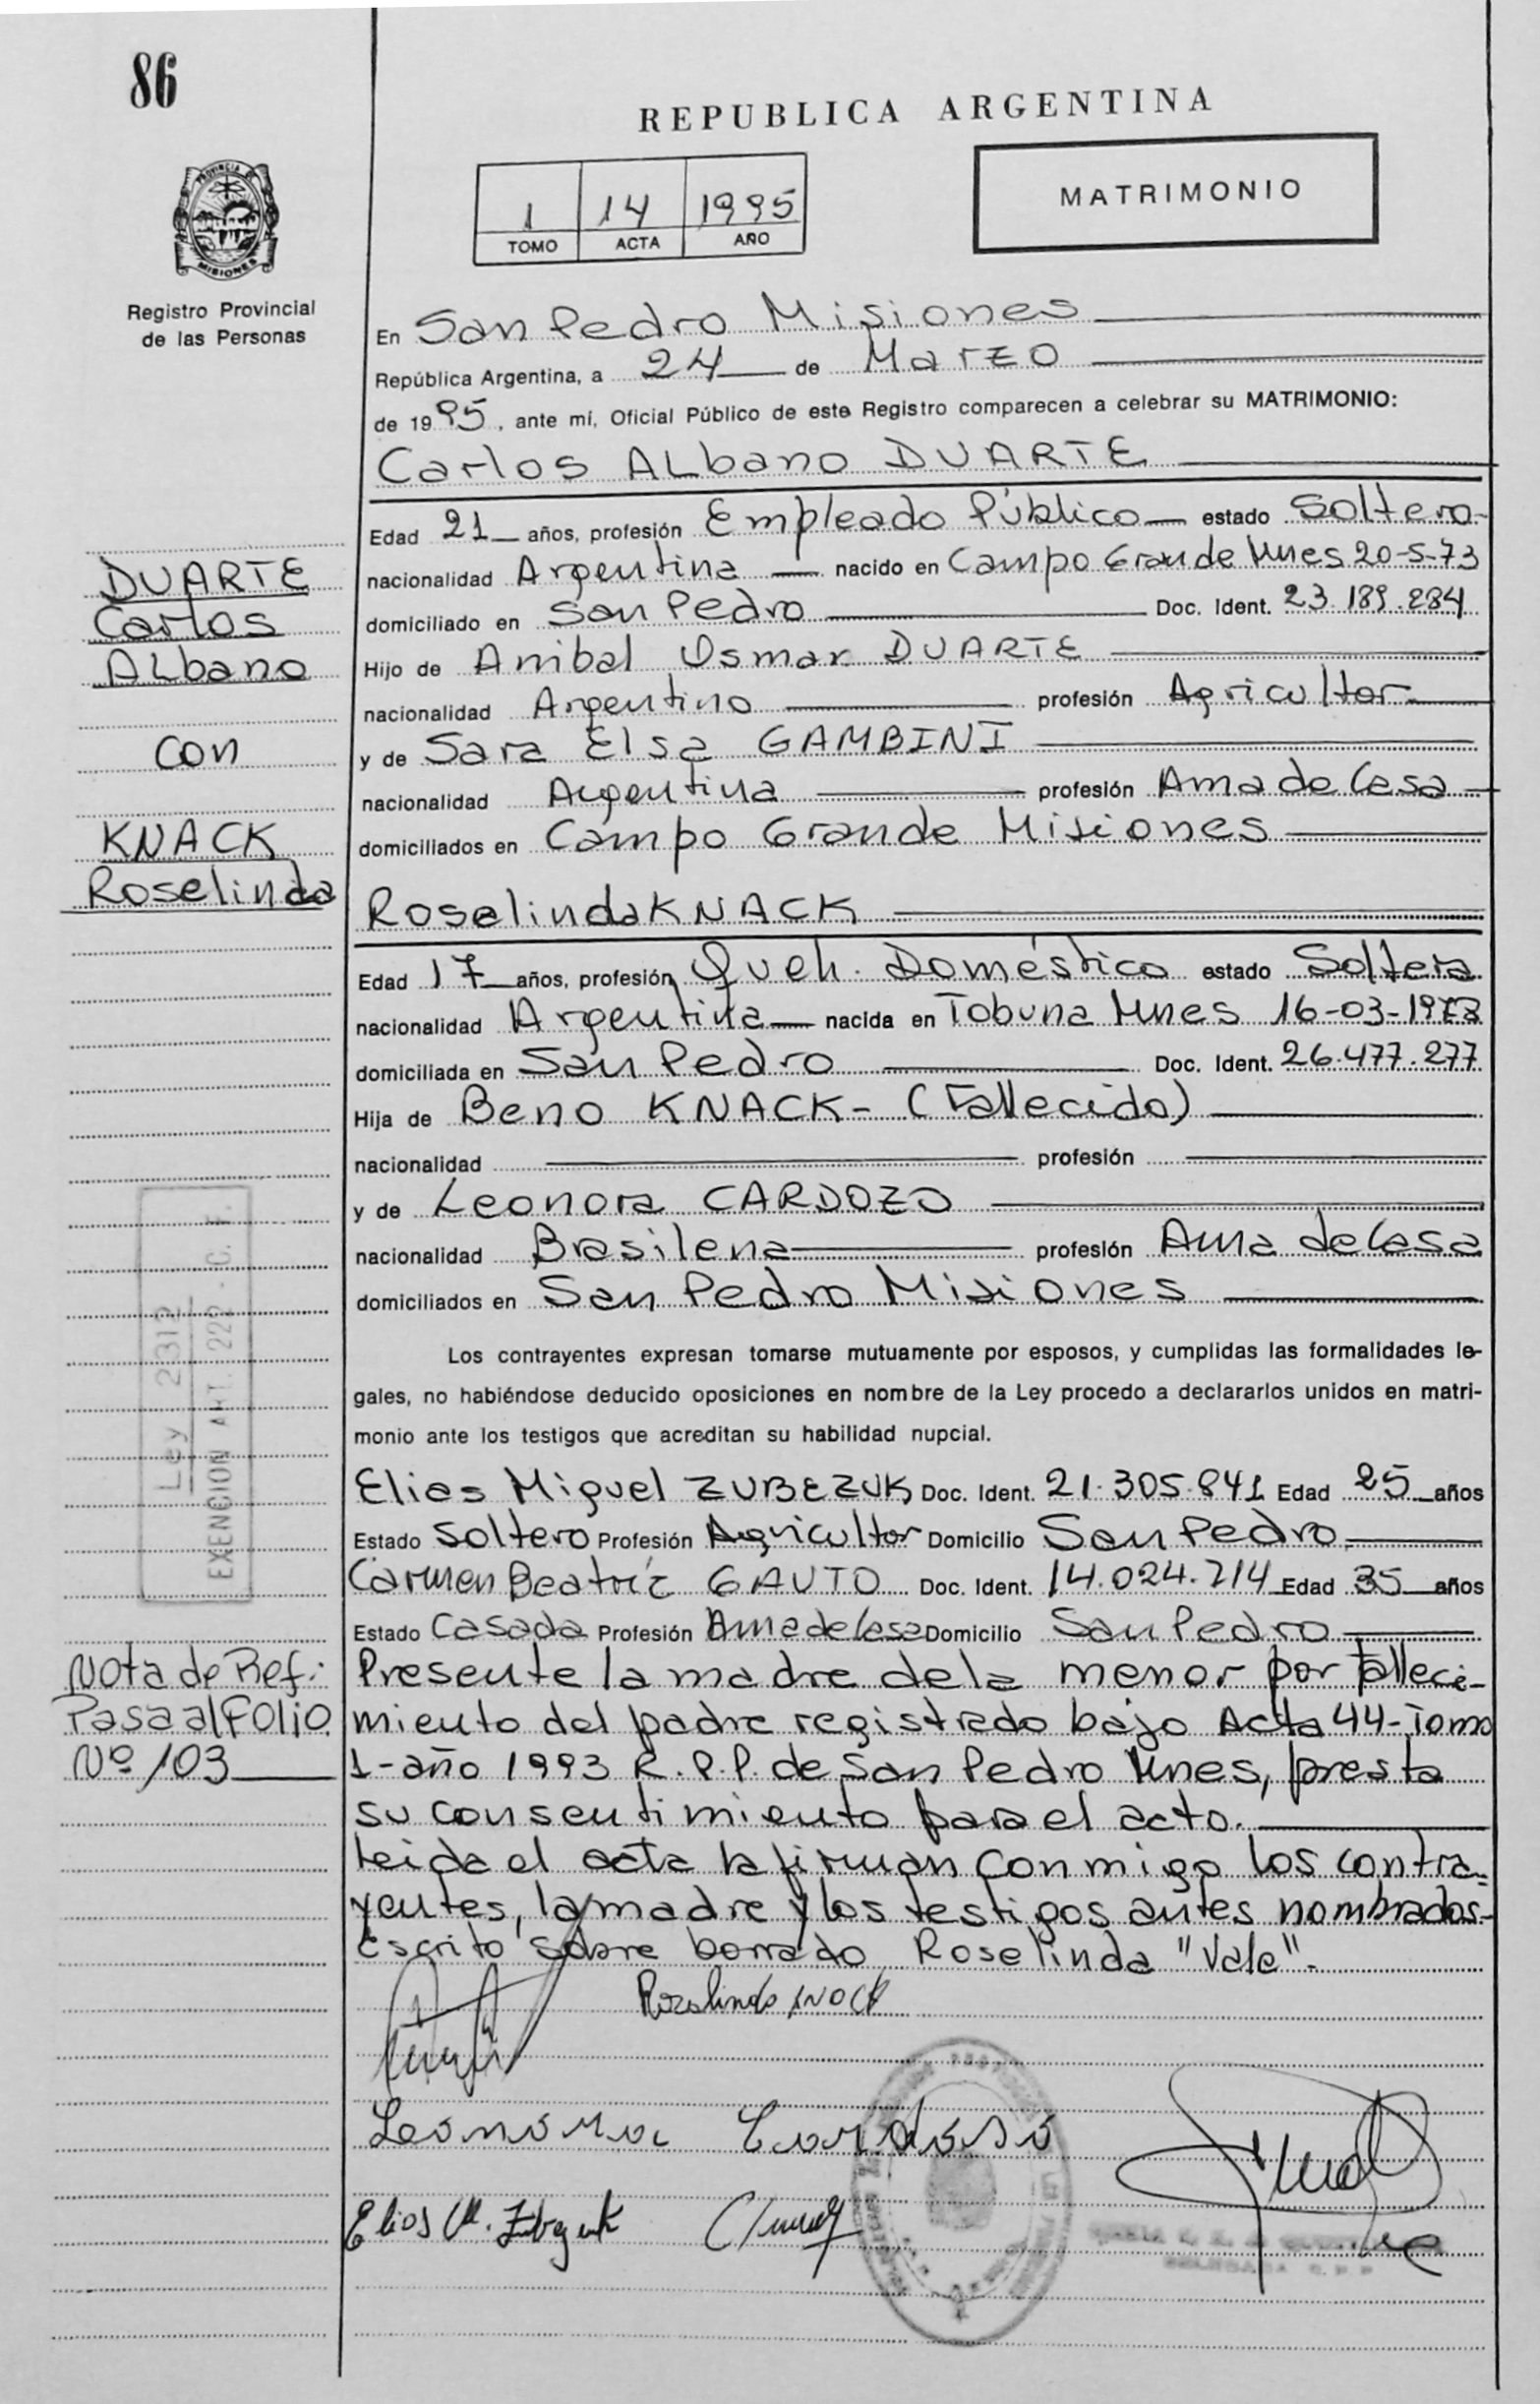 86
REPUBLICA ARGENTINA
PROVINCIA DE
MISIONES
Registro Provincial
de las Personas
1 14 1995
TOMO ACTA AÑO
MATRIMONIO
En San Pedro Misiones
República Argentina, a 24 de Marzo
de 1995, ante mí, Oficial Público de este Registro comparecen a celebrar su MATRIMONIO:
Carlos ALbano DUARTE
Edad 21 años, profesión Empleado Público estado Soltero
nacionalidad Argentina nacido en Campo Grande Mnes 20-5-73
domiciliado en San Pedro Doc. Ident. 23.189.284
Hijo de Anibal Osmar DUARTE
nacionalidad Argentino profesión Agricultor
y de Sara Elsa GAMBINI
nacionalidad Argentina profesión Ama de Casa
domiciliados en Campo Grande Misiones
Roselinda KNACK
Edad 17 años, profesión Queh. Doméstico estado Soltera
nacionalidad Argentina nacida en Tobuna Mnes 16-03-1978
domiciliada en San Pedro Doc. Ident. 26.477.277
Hija de Beno KNACK- (Fallecido)
nacionalidad profesión
y de Leonora CARDOZO
nacionalidad Brasilena profesión Ama de Casa
domiciliados en San Pedro Misiones
Los contrayentes expresan tomarse mutuamente por esposos, y cumplidas las formalidades le-
gales, no habiéndose deducido oposiciones en nombre de la Ley procedo a declararlos unidos en matri-
monio ante los testigos que acreditan su habilidad nupcial.
Elias Miguel ZUBEZUK Doc. Ident. 21.305.841 Edad 25 años
Estado Soltero Profesión Agricultor Domicilio San Pedro
Carmen Beatriz GAUTO Doc. Ident. 14.024.214 Edad 35 años
Estado Casada Profesión Ama de Casa Domicilio San Pedro
Presente la madre de la menor por falleci-
miento del padre registrado bajo Acta 44-Tomo
1-año 1993 R.P.P. de San Pedro Mnes, presta
su consentimiento para el acto.
Leida el acta la firman conmigo los contra-
yentes, la madre y los testigos antes nombrados-
Escrito sobre borrado Roselinda "Vale".
Roselinda KNACK
Leonora Cardoso
Elias M. Zubezuk
DUARTE
Carlos
ALbano
con
KNACK
Roselinda
Ley 2312
EXENCION ART. 222 - C. F.
Nota de Ref.:
Pasa al Folio
Nº 103